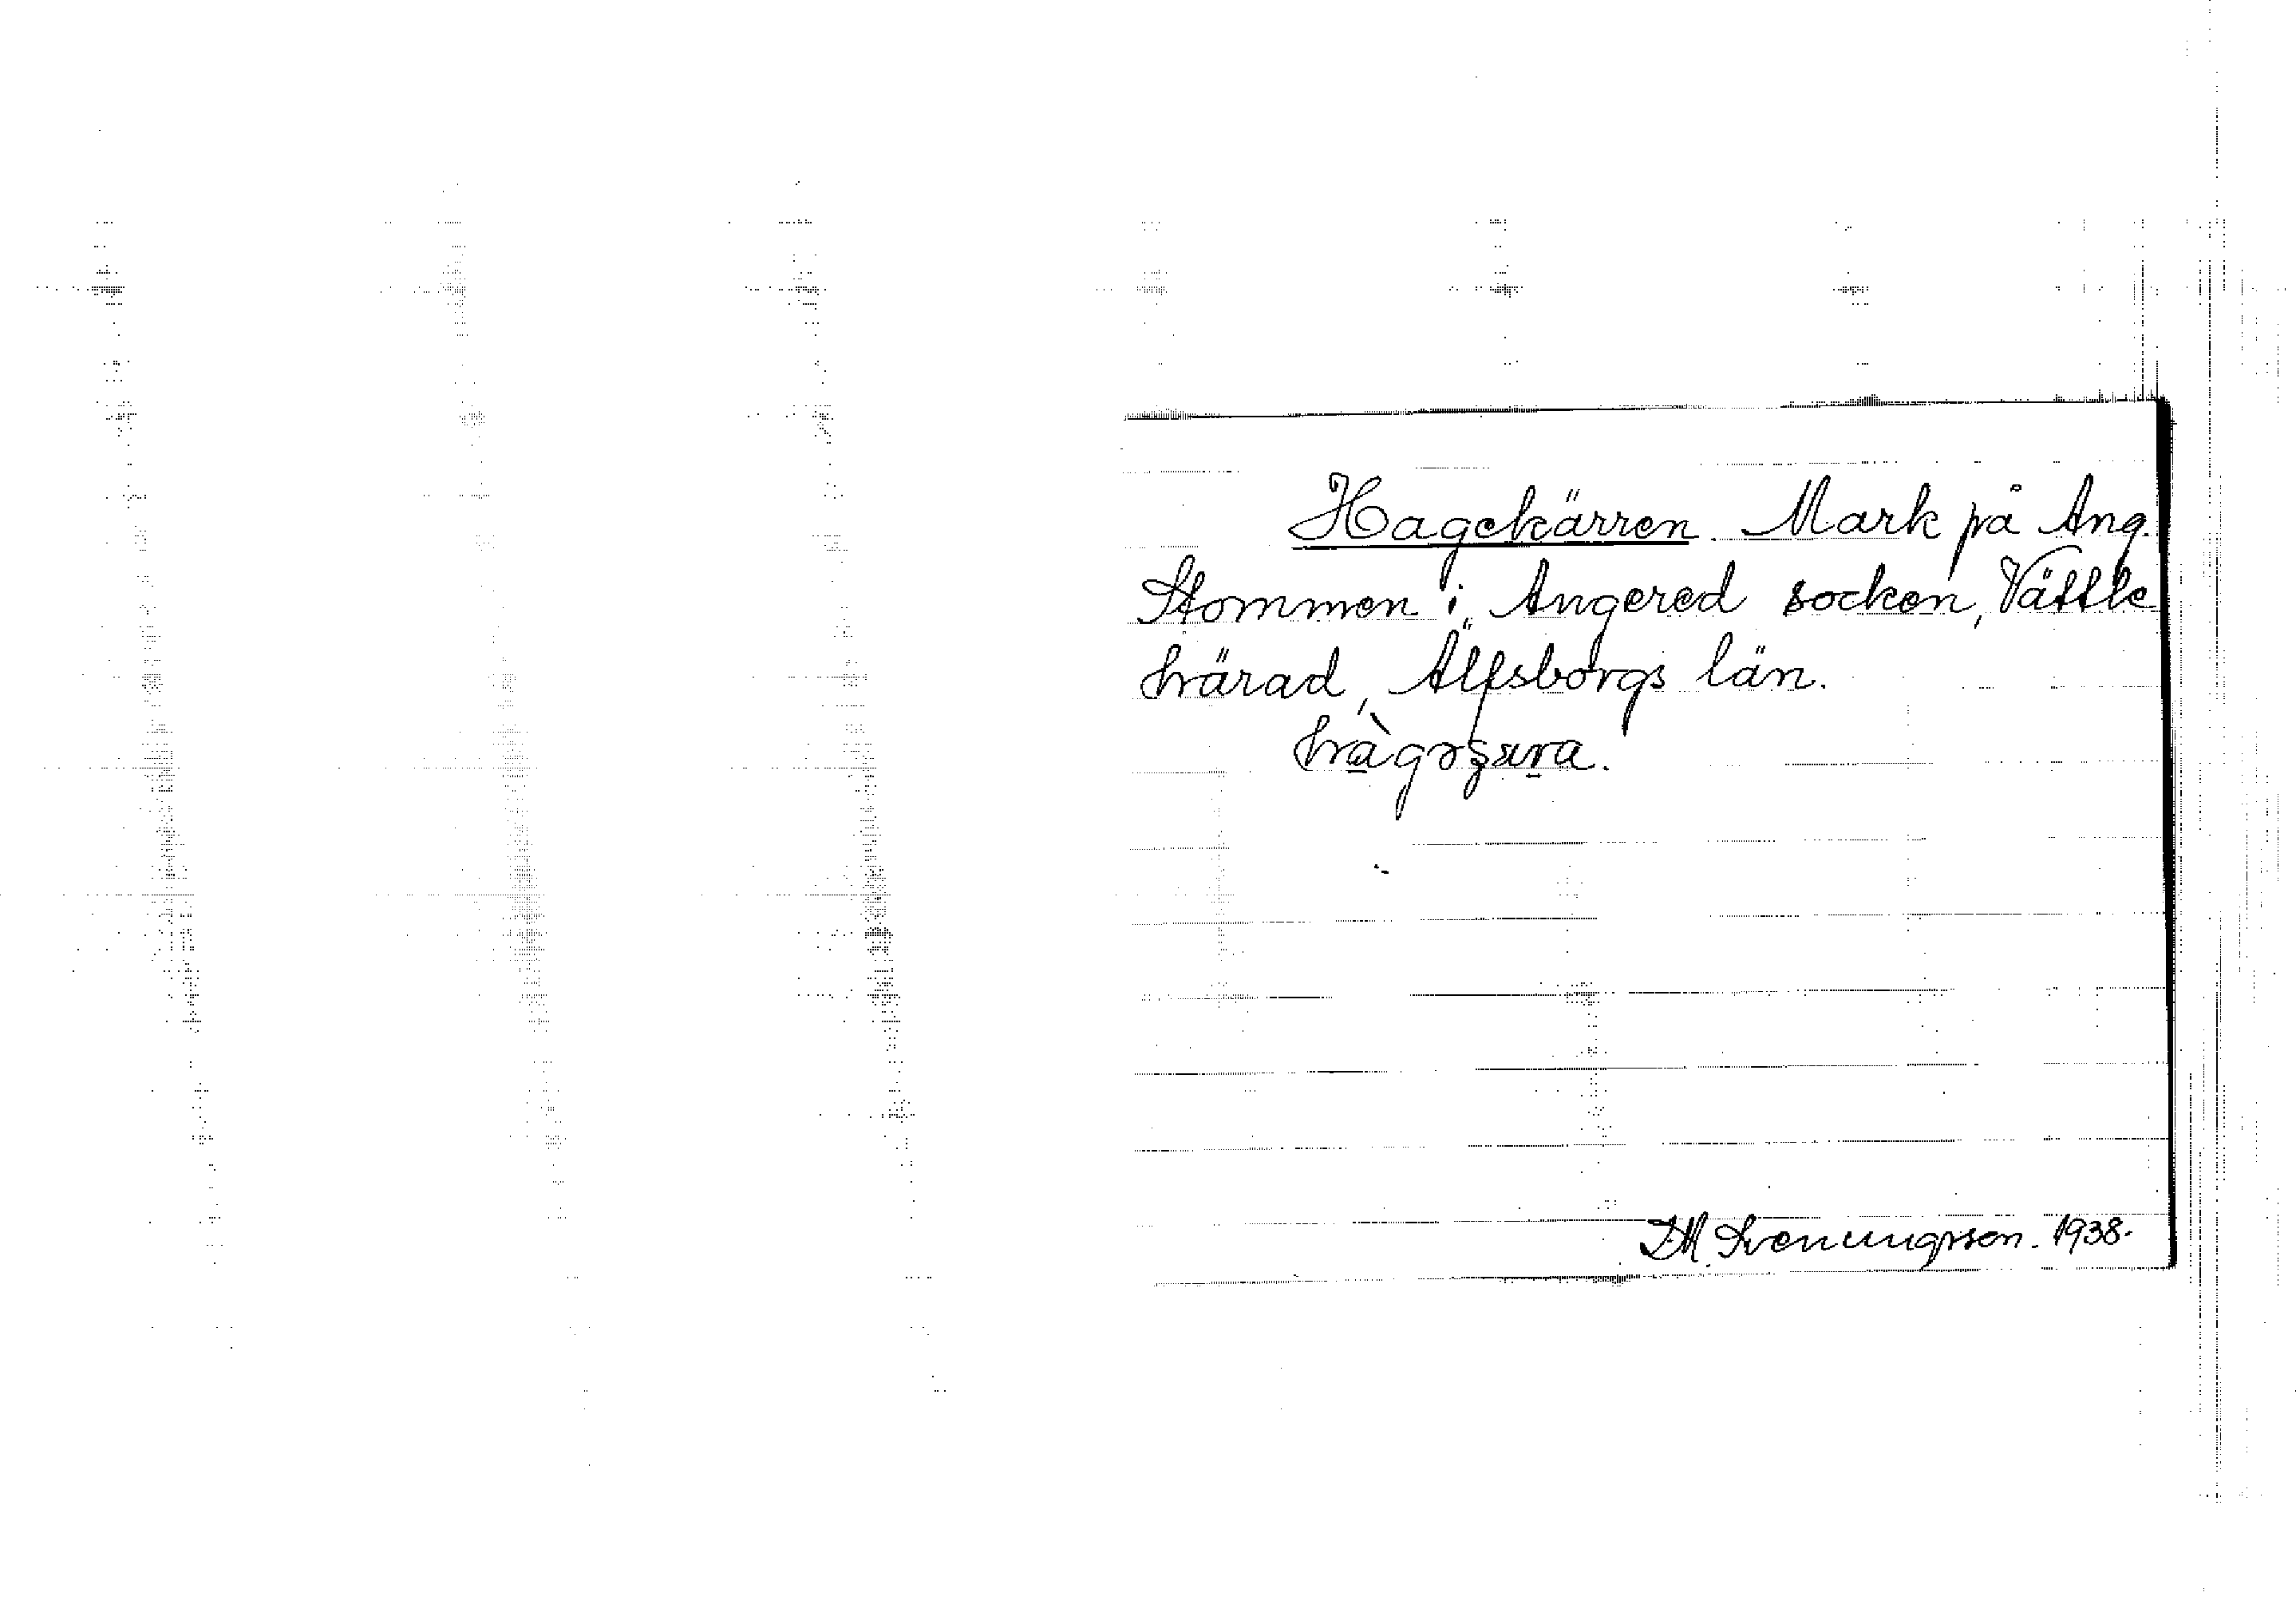 Hagekärren. Mark på Ang.
Stommen i Angered socken, Vättle
härad, Älfsborgs län.
D.M. Svenungsson. 1938.